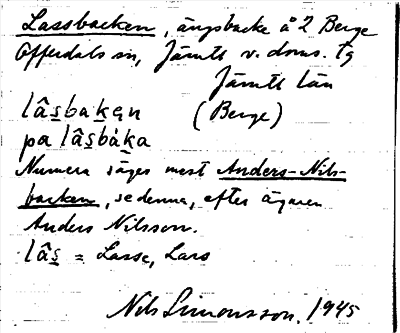 Lassbacken, ängsbacke å 2 Berge
Offerdals sn, Jämtl. v. doms. tg
Jämtl. län
lâs̱baḵęn (Berge)
pa lâs̱bàḵa
Numera säges mest Anders-Nils-
backen, se denna, efter ägaren
Anders Nilsson.
lâs̱ = Lasse, Lars
Nils Simonsson. 1945